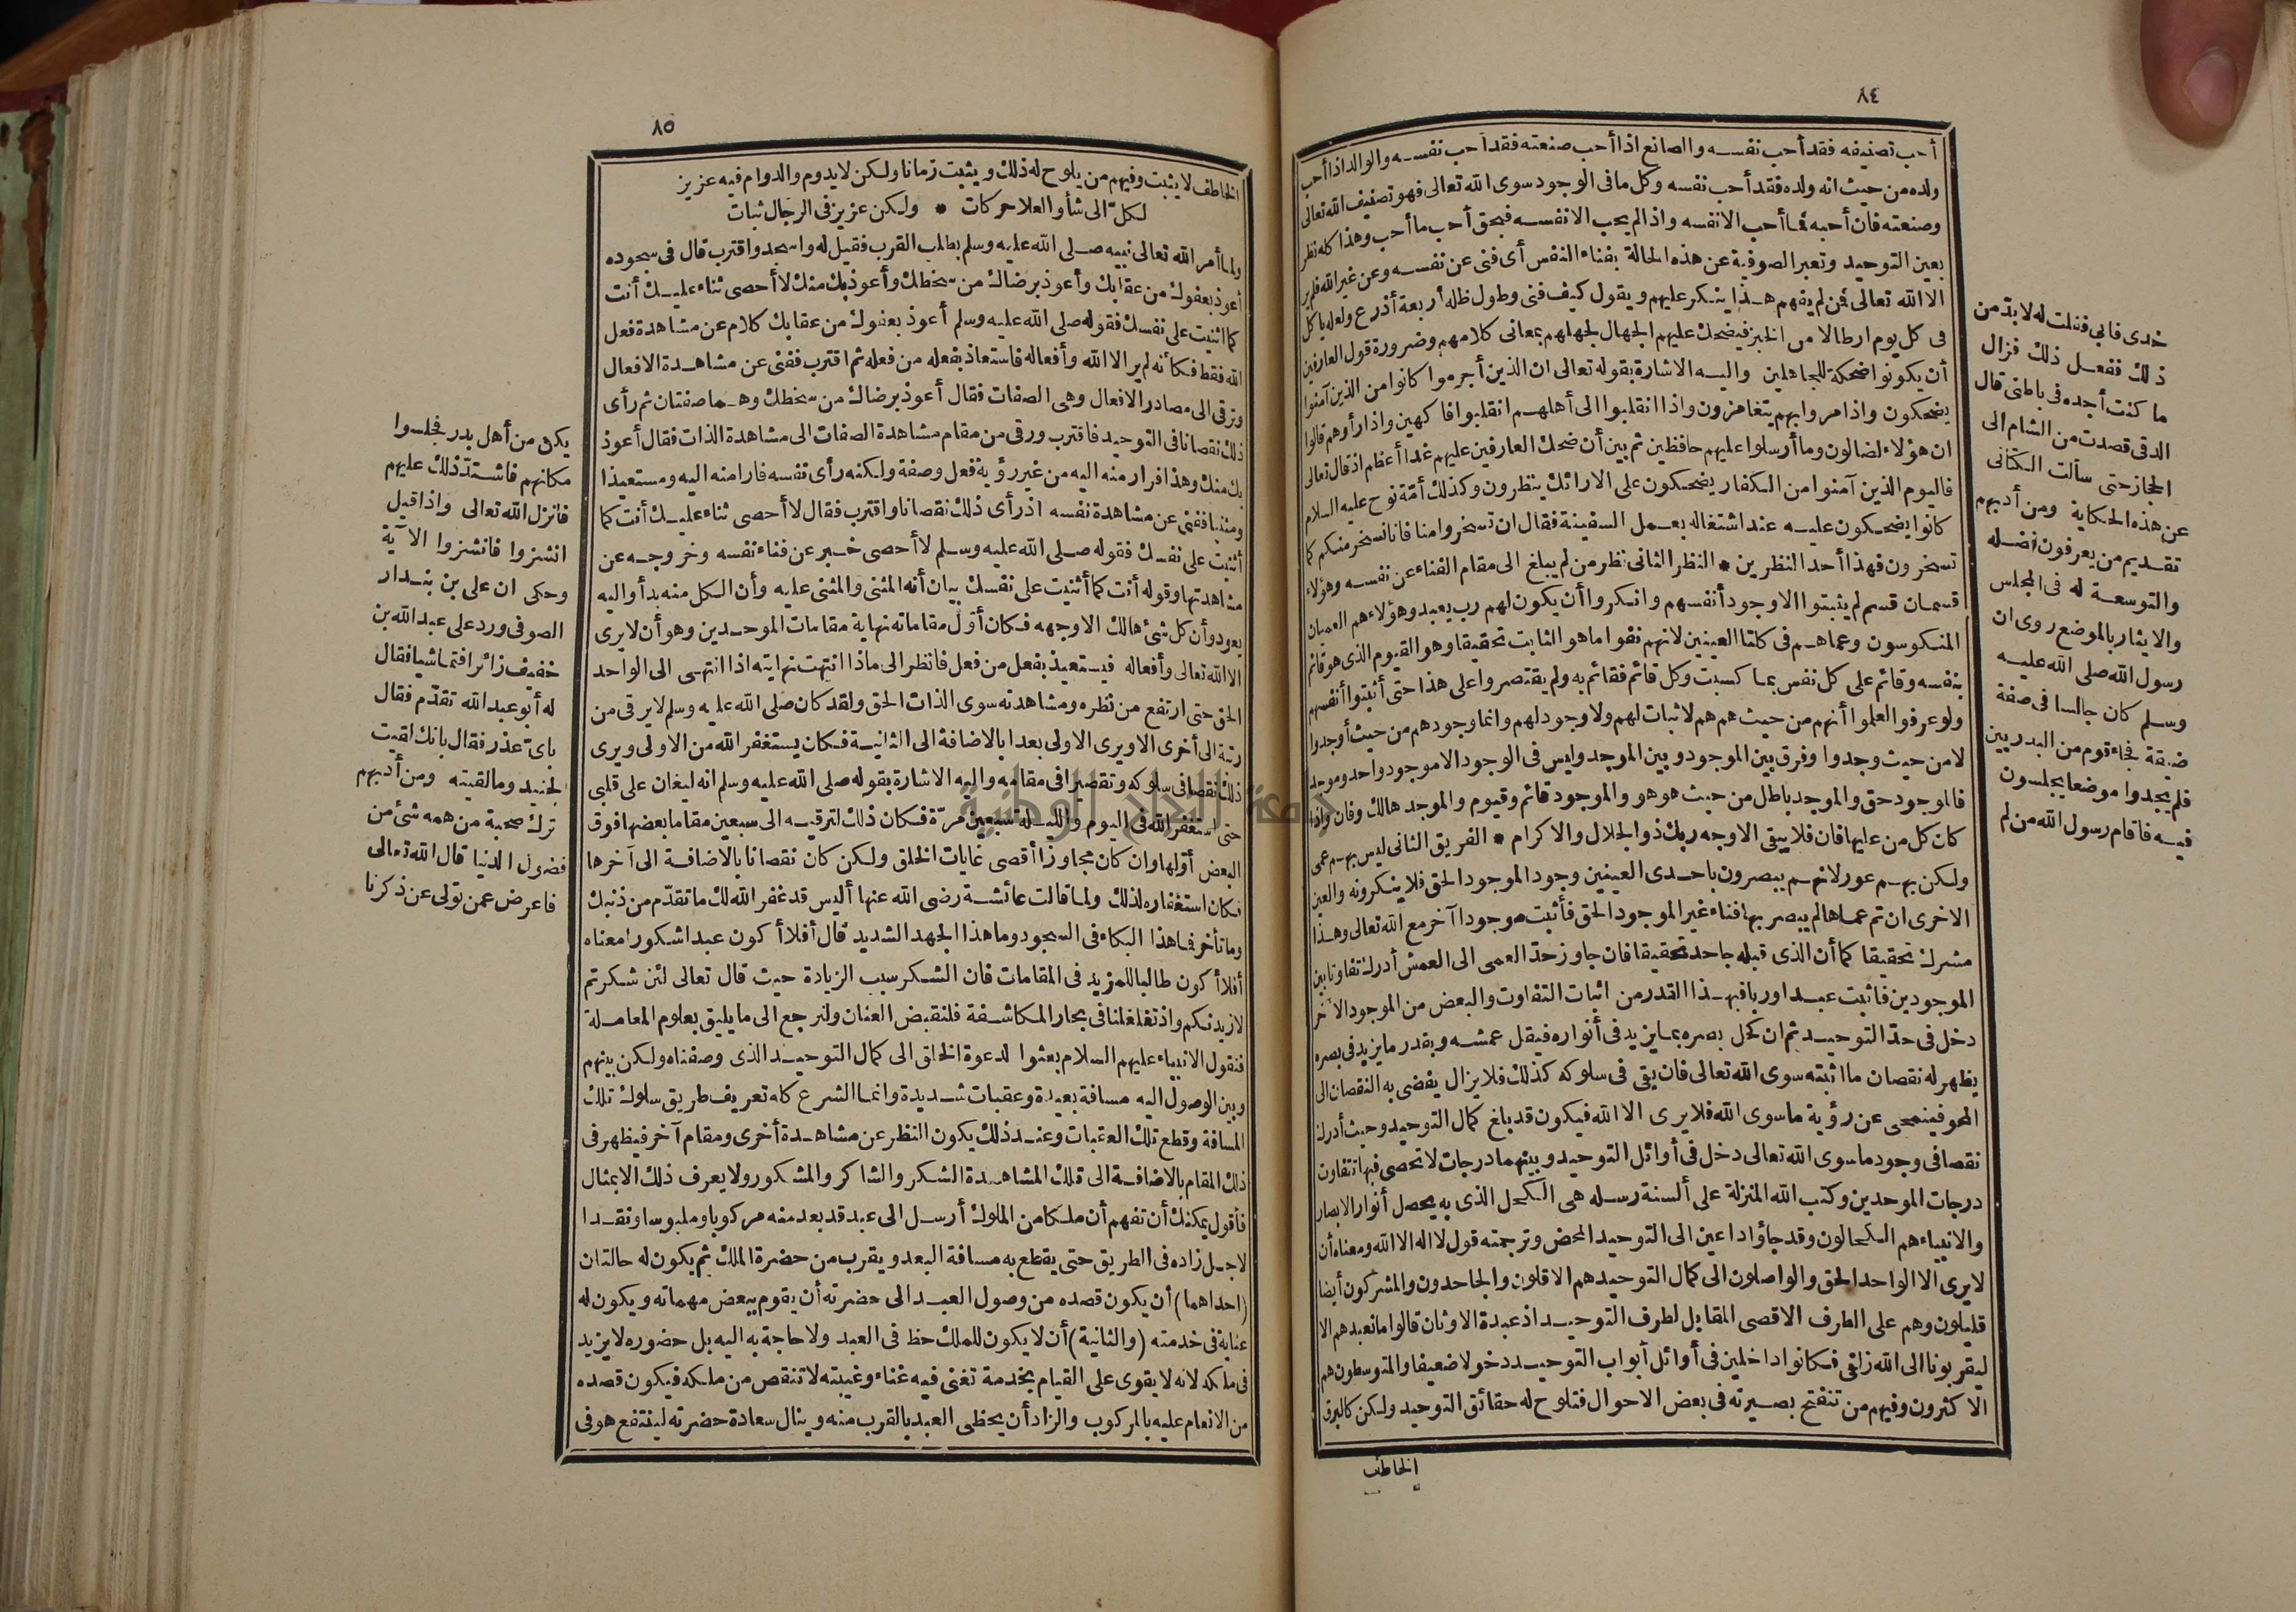 ٨٤
أحب تصنيفه فقد أحب نفسه والصانع اذا أحب صنعته فقد أحب نفسه والوالد اذا أحب
ولده من حيث انه ولده فقد أحب نفسه وكل ما فى الوجود سوى الله تعالى فهو تصنيف الله تعالى
وصنعته فان أحبه فما أحب الا نفسه واذا لم يحب الا نفسه فبحق أحب ما أحب وهذا كله نظر
بعين التوحيد وتعبر الصوفية عن هذه الحالة بفناء النفس أى فنى عن نفسه وعن غير الله فلم ير
الا الله تعالى فمن لم يفهم هذا ينكر عليهم ويقول كيف فنى وطول ظله أربعة أذرع ولعله يأكل
فى كل يوم ارطالا من الخبز فيضحك عليهم الجهال لجهلهم بمعانى كلامهم وضرورة قول العارفين
أن يكونوا ضحكة للجاهلين واليه الاشارة بقوله تعالى ان الذين أجرموا كانوا من الذين آمنوا
يضحكون واذا مروا بهم يتغامزون واذا انقلبوا الى أهلهم انقلبوا فاكهين واذا رأوهم قالوا
ان هؤلاء لضالون وما أرسلوا عليهم حافظين ثم بين أن ضحك العارفين عليهم غدا أعظم اذ قال تعالى
فاليوم الذين آمنوا من الكفار يضحكون على الارائك ينظرون وكذلك أمّة نوح عليه السلام
كانوا يضحكون عليه عند اشتغاله بعمل السفينة فقال ان تسخروا منا فانا نسخر منكم كما
تسخرون فهذا أحد النظرين * النظر الثانى نظر من لم يبلغ الى مقام الفناء عن نفسه وهؤلاء
قسمان قسم لم يثبتوا الا وجود أنفسهم وانكروا أن يكون لهم رب يعبد وهؤلاء هم العميان
المنكوسون وعماهم فى كلتا العينين لانهم نفوا ما هو الثابت تحقيقا وهو القيوم الذى هو قائم
بنفسه وقائم على كل نفس بما كسبت وكل قائم فقائم به ولم يقتصروا على هذا حتى أثبتوا أنفسهم
ولو عرفوا لعلموا أنهم من حيث هم هم لا ثبات لهم ولا وجود لهم وانما وجودهم من حيث أوجدوا
لا من حيث وجدوا وفرق بين الموجود وبين الموجد وليس فى الوجود الا موجود واحد وموجد
فالموجود حق والموجد باطل من حيث هو هو والموجود قائم وقيوم والموجد هالك وفان واذا
كان كل من عليها فان فلا يبقى الا وجه ربك ذو الجلال والاكرام * الفريق الثانى ليس بهم عمى
ولكن بهم عور لانهم يبصرون باحدى العينين وجود الموجود الحق فلا ينكرونه والعين
الاخرى ان تم عماها لم يبصر بها فناء غير الموجود الحق فأثبت موجودا آخر مع الله تعالى وهذا
مشرك تحقيقا كما أن الذى قبله جاحد تحقيقا فان جاوز حدّ العمى الى العمش أدرك تفاوتا بين
الموجودين فاثبت عبدا وربا فبهذا القدر من اثبات التفاوت والبعض من الموجود الآخر
دخل فى حدّ التوحيد ثم ان كحل بصره بما يزيد فى أنواره فيقل عمشه وبقدر ما يزيد فى بصره
يظهر له نقصان ما اثبته سوى الله تعالى فان بقى فى سلوكه كذلك فلا يزال يفضى به النقصان الى
المحو فينمحى عن رؤية ما سوى الله فلا يرى الا الله فيكون قد بلغ كمال التوحيد وحيث أدرك
نقصا فى وجود ما سوى الله تعالى دخل فى أوائل التوحيد وبينهما درجات لا تحصى فبها تتفاوت
درجات الموحدين وكتب الله المنزلة على ألسنة رسله هى الكحل الذى به يحصل أنوار الابصار
والانبياء هم الكحالون وقد جاؤا داعين الى التوحيد المحض وترجمته قول لا اله الا الله ومعناه أن
لا يرى الا الواحد الحق والواصلون الى كمال التوحيد هم الاقلون والجاحدون والمشركون أيضا
قليلون وهم على الطرف الاقصى المقابل لطرف التوحيد اذ عبدة الاوثان قالوا ما نعبدهم الا
ليقربونا الى الله زلفى فكانوا داخلين فى أوائل أبواب التوحيد دخولا ضعيفا والمتوسطون هم
الاكثرون وفيهم من تنفتح بصيرته فى بعض الاحوال فتلوح له حقائق التوحيد ولكن كالبرق
الخاطف
خدى فابى فقلت له لا بدّ من
ذلك ففعل ذلك فزال
ما كنت أجده فى باطنى قال
الدقى قصدت من الشام الى
الحجاز حتى سألت الكتانى
عن هذه الحكاية ومن أدبهم
تقديم من يعرفون فضله
والتوسعة له فى المجلس
والايثار بالموضع روى ان
رسول الله صلى الله عليه
وسلم كان جالسا فى صفة
ضيقة فجاء قوم من البدريين
فلم يجدوا موضعا يجلسون
فيه فاقام رسول الله من لم
٨٥
الخاطف لا يثبت وفيهم من يلوح له ذلك ويثبت زمانا ولكن لا يدوم والدوام فيه عزيز
لكلّ الى شأو العلا حركات * ولكن عزيز فى الرجال ثبات
ولما أمر الله تعالى نبيه صلى الله عليه وسلم بطلب القرب فقيل له واسجد واقترب قال فى سجوده
أعوذ بعفوك من عقابك وأعوذ برضاك من سخطك وأعوذ بك منك لا أحصى ثناء عليك أنت
كما اثنيت على نفسك فقوله صلى الله عليه وسلم أعوذ بعفوك من عقابك كلام عن مشاهدة فعل
الله فقط فكأنه لم ير الا الله وأفعاله فاستعاذ بفعله من فعله ثم اقترب ففنى عن مشاهدة الافعال
وترقى الى مصادر الافعال وهى الصفات فقال أعوذ برضاك من سخطك وهما صفتان ثم رأى
ذلك نقصانا فى التوحيد فاقترب ورقى من مقام مشاهدة الصفات الى مشاهدة الذات فقال أعوذ
بك منك وهذا فرار منه اليه من غير رؤية فعل وصفة ولكنه رأى نفسه فارا منه اليه ومستعيذا
ومثنيا ففنى عن مشاهدة نفسه اذ رأى ذلك نقصانا واقترب فقال لا أحصى ثناء عليك أنت كما
أثنيت على نفسك فقوله صلى الله عليه وسلم لا أحصى خبر عن فناء نفسه وخروجه عن
مشاهدتها وقوله أنت كما أثنيت على نفسك بيان أنه المثنى والمثنى عليه وأن الكل منه بدأ واليه
يعود وأن كل شئ هالك الا وجهه فكان أوّل مقاماته نهاية مقامات الموحدين وهو أن لا يرى
الا الله تعالى وأفعاله فيستعيذ بفعل من فعل فانظر الى ماذا انتهت نهايته اذا انتهى الى الواحد
الحق حتى ارتفع من نظره ومشاهدته سوى الذات الحق ولقد كان صلى الله عليه وسلم لا يرقى من
رتبة الى أخرى الا ويرى الاولى بعدا بالاضافة الى الثانية فكان يستغفر الله من الاولى ويرى
ذلك نقصا فى سلوكه وتقصيرا فى مقامه واليه الاشارة بقوله صلى الله عليه وسلم انه ليغان على قلبى
حتى استغفر الله فى اليوم والليلة سبعين مرّة فكان ذلك لترقيه الى سبعين مقاما بعضها فوق
البعض أوّلها وان كان مجاوزا أقصى غايات الخلق ولكن كان نقصانا بالاضافة الى آخرها
فكان استغفاره لذلك ولما قالت عائشة رضى الله عنها أليس قد غفر الله لك ما تقدّم من ذنبك
وما تأخر فما هذا البكاء فى السجود وما هذا الجهد الشديد قال أفلا أكون عبدا شكورا معناه
أفلا أكون طالبا للمزيد فى المقامات فان الشكر سبب الزيادة حيث قال تعالى لئن شكرتم
لازيدنكم واذ تغلغلنا فى بحار المكاشفة فلنقبض العنان ولنرجع الى ما يليق بعلوم المعاملة
فنقول الانبياء عليهم السلام بعثوا لدعوة الخلق الى كمال التوحيد الذى وصفناه ولكن بينهم
وبين الوصول اليه مسافة بعيدة وعقبات شديدة وانما الشرع كله تعريف طريق سلوك تلك
المسافة وقطع تلك العقبات وعند ذلك يكون النظر عن مشاهدة أخرى ومقام آخر فيظهر فى
ذلك المقام بالاضافة الى تلك المشاهدة الشكر والشاكر والمشكور ولا يعرف ذلك الا بمثال
فأقول يمكنك أن تفهم أن ملكا من الملوك أرسل الى عبد قد بعد منه مركوبا وملبوسا ونقدا
لاجل زاده فى الطريق حتى يقطع به مسافة البعد ويقرب من حضرة الملك ثم يكون له حالتان
(احداهما) أن يكون قصده من وصول العبد الى حضرته أن يقوم ببعض مهماته ويكون له
عناية فى خدمته (والثانية) أن لا يكون للملك حظ فى العبد ولا حاجة به اليه بل حضوره لا يزيد
فى ملكه لانه لا يقوى على القيام بخدمة تغنى فيه غناء وغيبته لا تنقص من ملكه فيكون قصده
من الانعام عليه بالمركوب والزاد أن يحظى العبد بالقرب منه وينال سعادة حضرته لينتفع هو فى
يكن من أهل بدر فجلسوا
مكانهم فاشتدّ ذلك عليهم
فانزل الله تعالى واذا قيل
انشزوا فانشزوا الآية
وحكى ان على بن بندار
الصوفى ورد على عبد الله بن
خفيف زائرا فتماشيا فقال
له أبو عبد الله تقدّم فقال
باىّ عذر فقال بانك لقيت
الجنيد وما لقيته ومن أدبهم
ترك صحبة من همه شئ من
فضول الدنيا قال الله تعالى
فاعرض عمن تولى عن ذكرنا
جامعة النجاح الوطنية